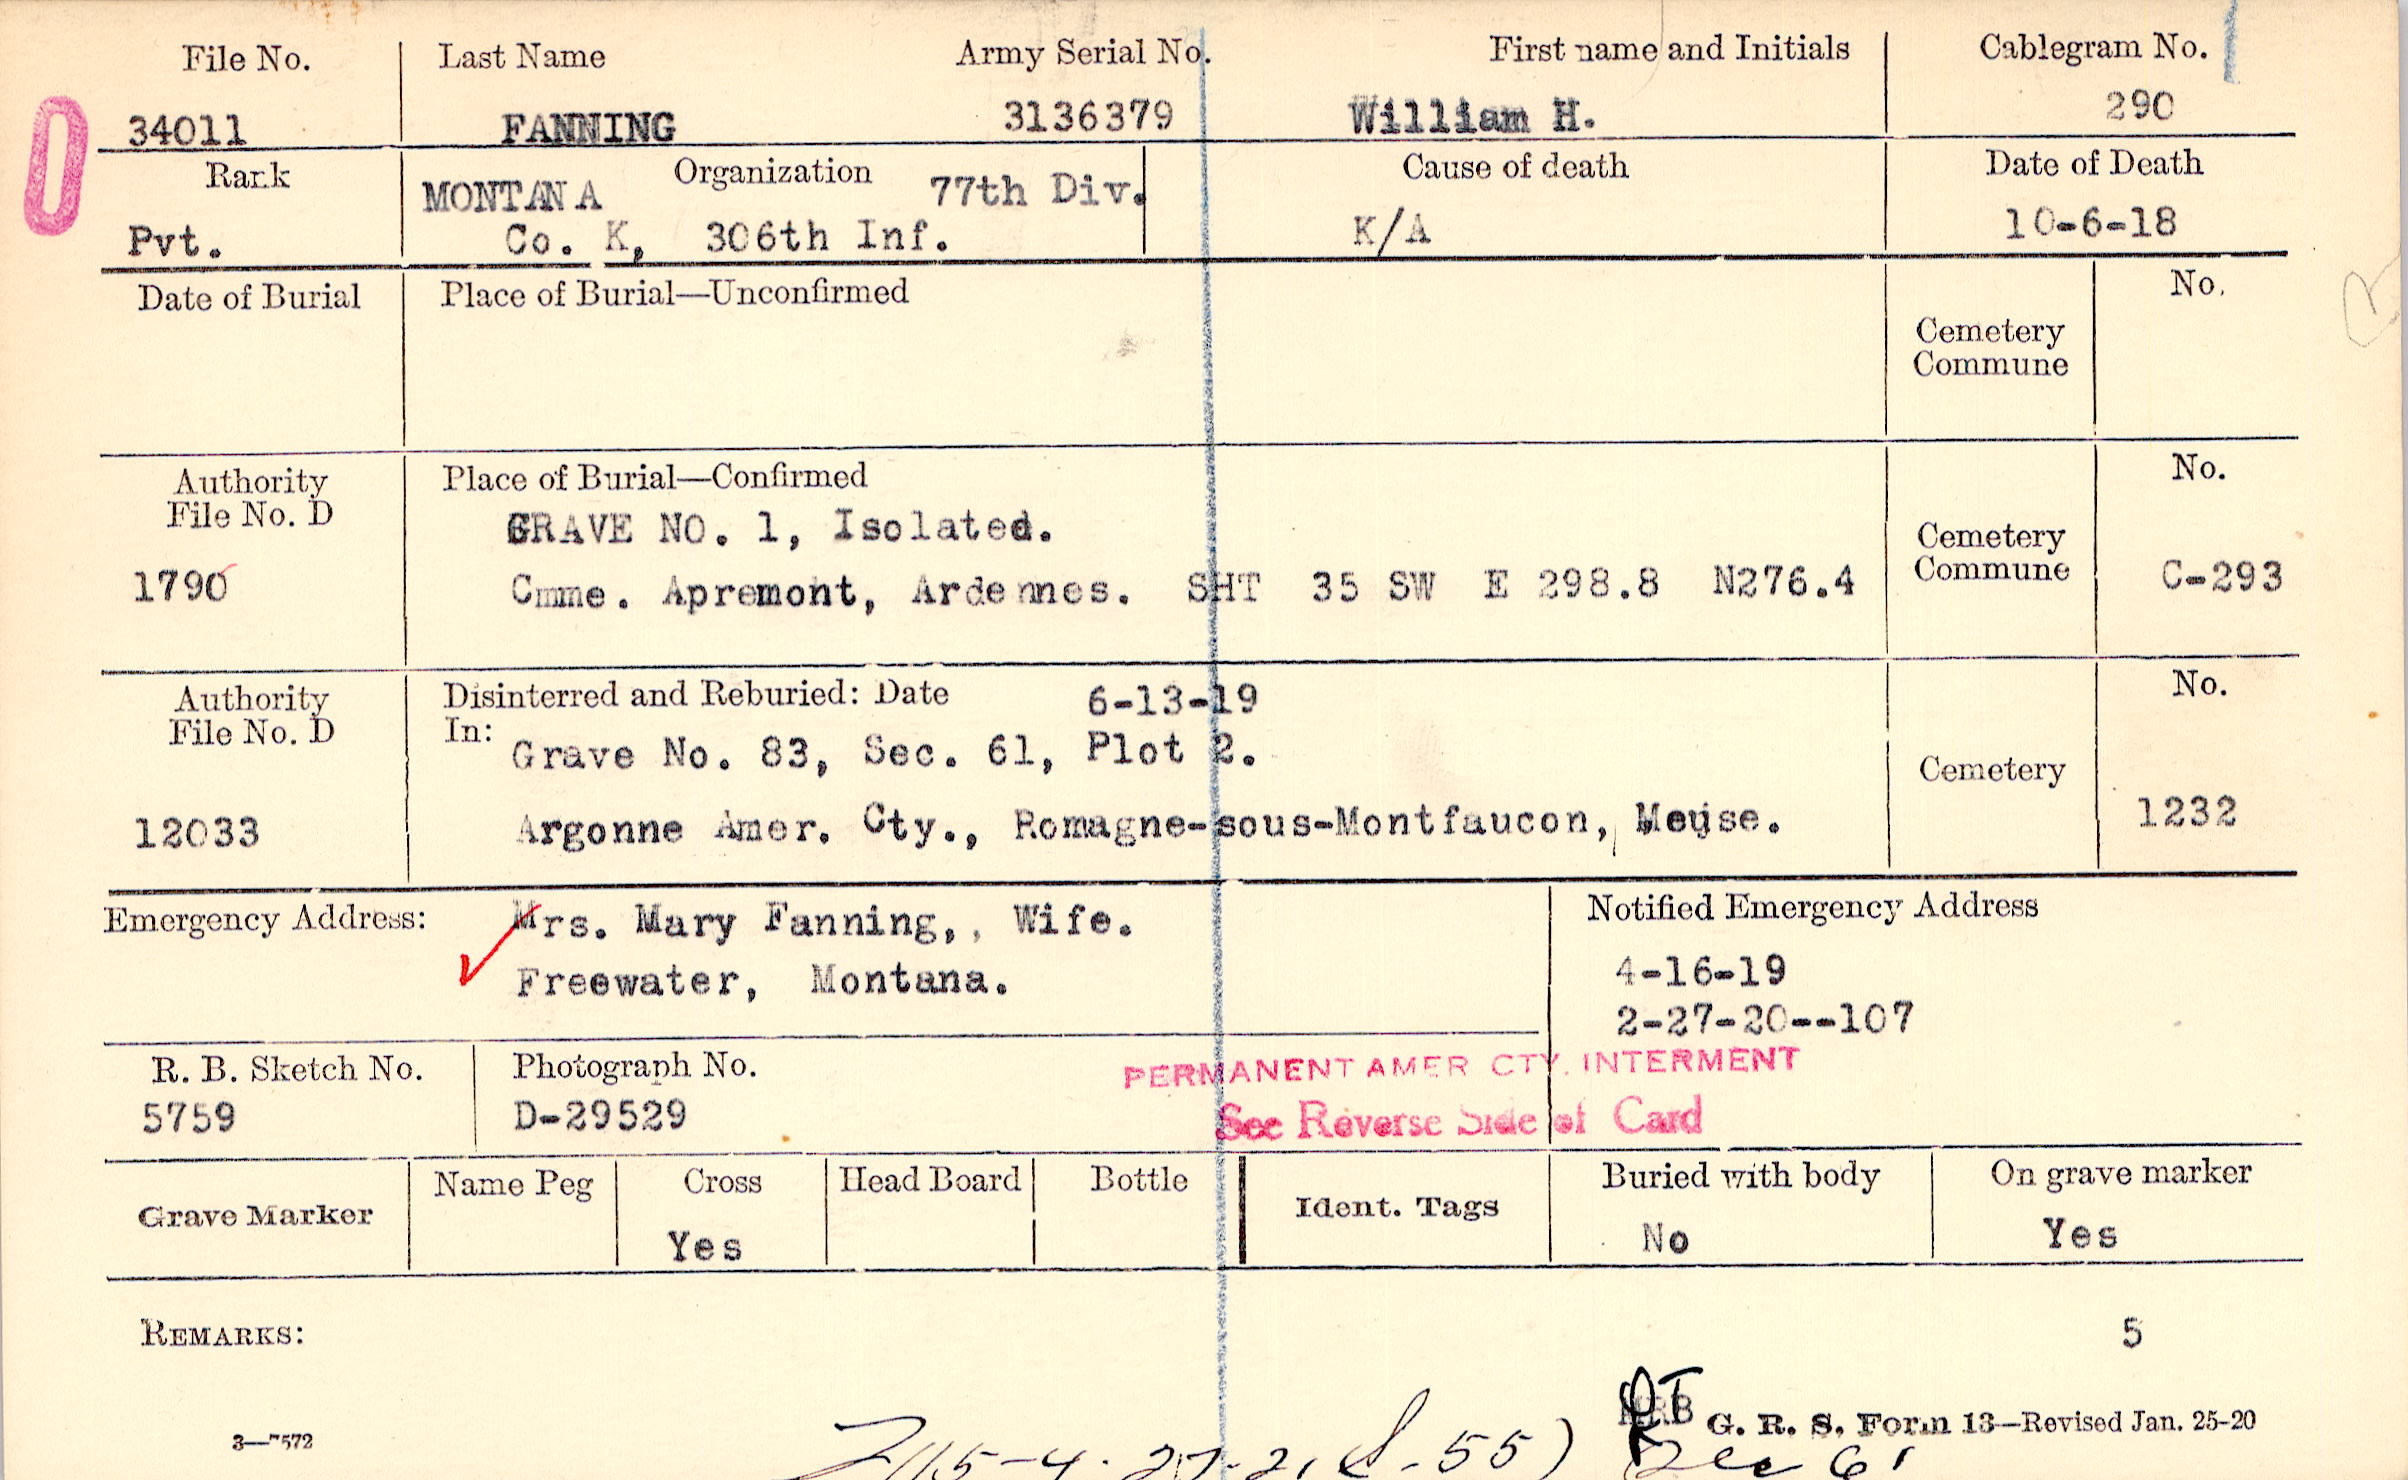 File No. Last Name Army Serial No. First name and Initials Cablegram No.
34011 FANNING 3136379 William H. 290
Rank Organization Cause of death Date of Death
MONTANA 77th Div.
Pvt. Co. K, 306th Inf. K/A 10-6-18
Date of Burial Place of Burial—Unconfirmed No.
Cemetery
Commune
Authority Place of Burial—Confirmed No.
File No. D
GRAVE NO. 1, Isolated. Cemetery
1790 Cmme. Apremont, Ardennes. SHT 35 SW E 298.8 N276.4 Commune C-293
Authority Disinterred and Reburied: Date 6-13-19 No.
File No. D In:
Grave No. 83, Sec. 61, Plot 2. Cemetery
12033 Argonne Amer. Cty., Romagne-sous-Montfaucon, Meuse. 1232
Emergency Address: Mrs. Mary Fanning,, Wife. Notified Emergency Address
Freewater, Montana. 4-16-19
2-27-20--107
R. B. Sketch No. Photograph No. PERMANENT AMER CTY. INTERMENT
5759 D-29529 See Reverse Side of Card
Grave Marker Name Peg Cross Head Board Bottle Ident. Tags Buried with body On grave marker
Yes No Yes
REMARKS: 5
MRB G. R. S. Form 13—Revised Jan. 25-20
3—7572